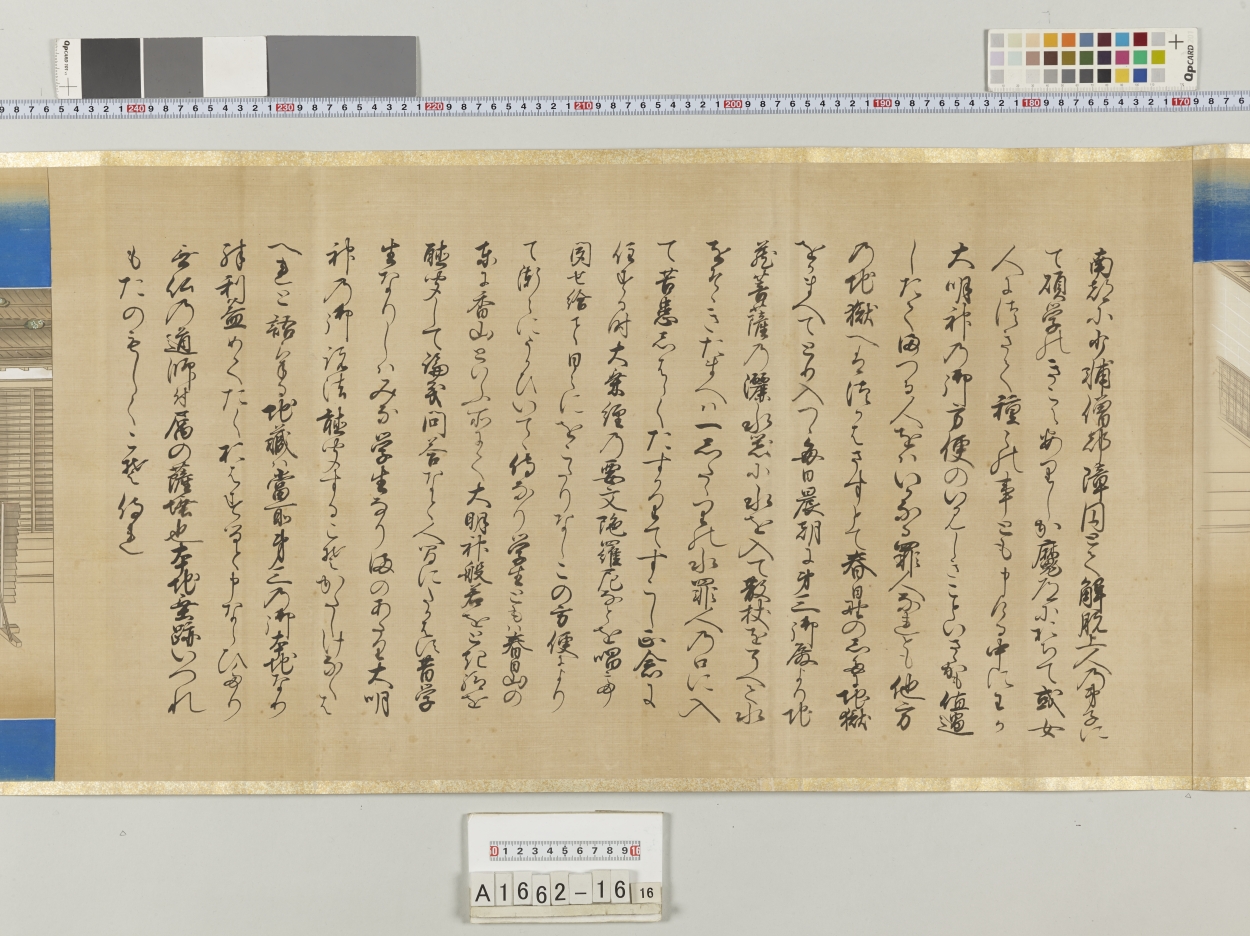 南都に少輔僧都障円とて解脱上人の弟子に
て碩学のきこえありしか魔道におちて或女
人につきて種々の事とも申ける中に我
大明神の御方便のいみしきこといさゝかも値遇
したてまつる人をはいかなる罪人なれとも他方
の地獄へはつかはさすして春日野のしたに地獄
をかまへてとり入つゝ毎日晨朝に第三御殿より地
蔵菩薩の灑水器に水を入て散杖をそへて水
をそゝきたまへは一したゝりの水罪人の口に入
て苦患しはらくたすかりてすこし正念に
住する時大乗経の要文陀羅尼なとを唱て
聞せ給こと日々にをこたりなしこの方便により
て漸々にうかひいてゝ侍なり学生ともは春日山の
東に香山といふ所にて大明神般若をとき給を
聴聞して論義問答なと人間にたかはす昔学
生なりしはみな学生なりまのあたり大明
神の御説法聴聞するこそかたしけなくは
へれと語ける地蔵は当所第三の御本地なり
殊利益めてたくおはするなと申ならひたり
無仏の導師付属の薩埵也本地垂跡いつれ
もたのもしくこそ侍れ
A1662-16 16